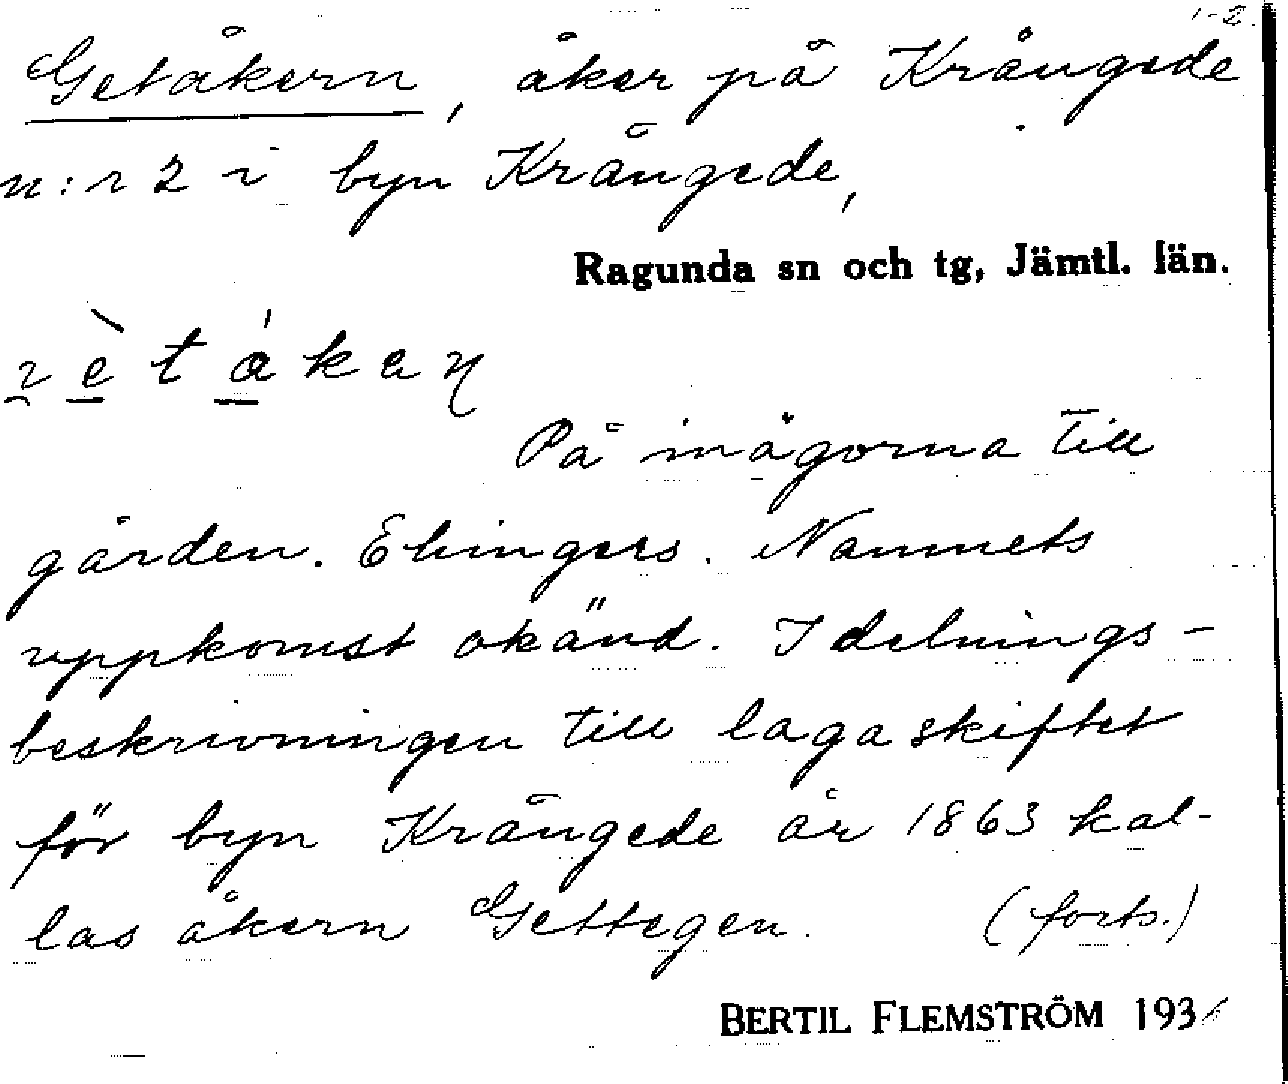 1-2.
Getåkern, åker på Krångede
n:r 2 i byn Krångede,
Ragunda sn och tg, Jämtl. län.
På inägorna till
gården. Ehingers. Namnets
uppkomst okänd. I delnings-
beskrivningen till laga skiftet
för byn Krångede år 1863 kal-
las åkern Gettegen. (forts.)
BERTIL FLEMSTRÖM 193